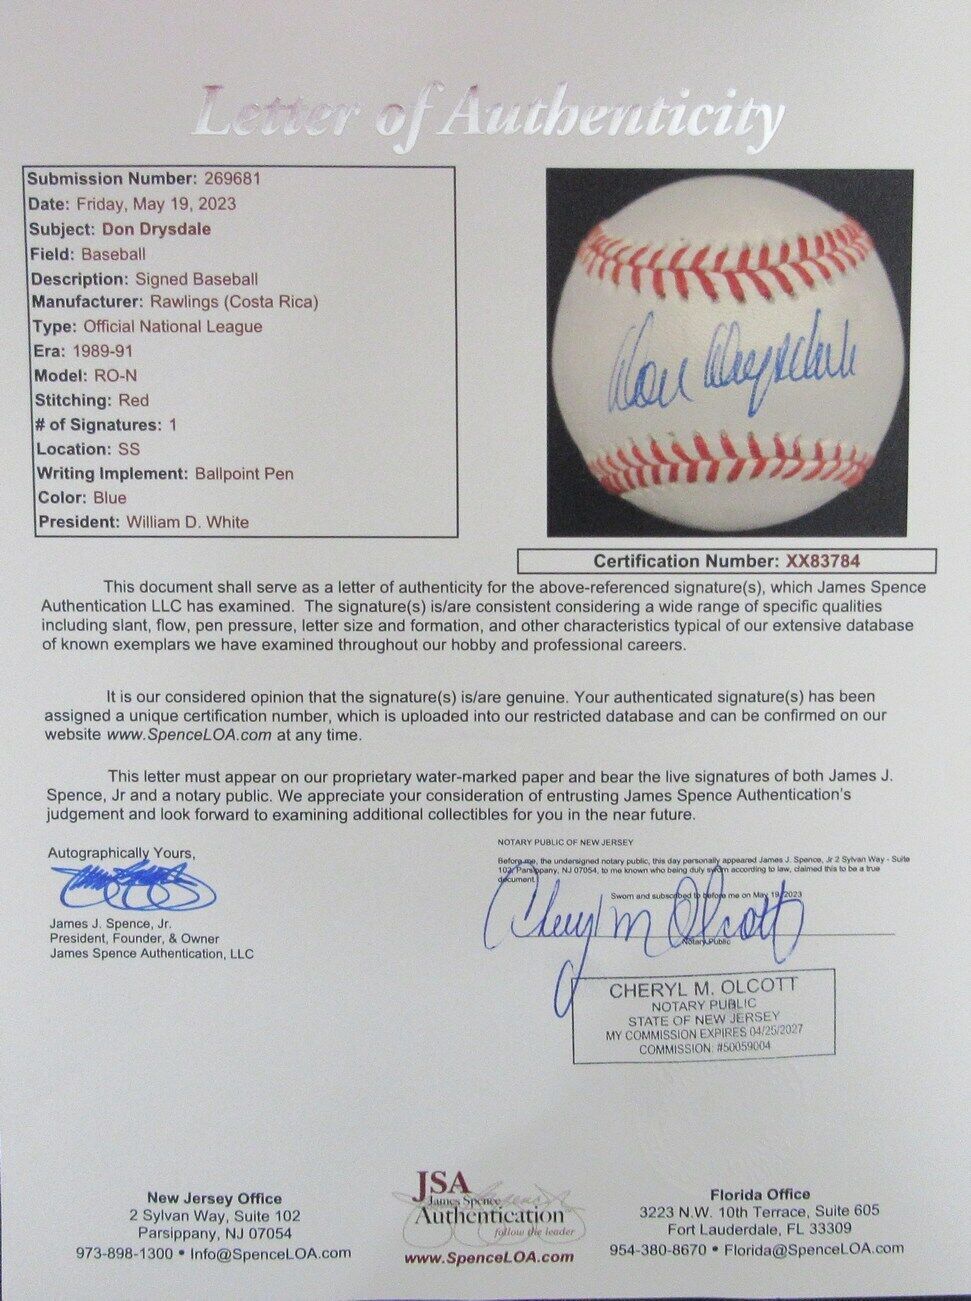 Letter of Authenticity
Submission Number: 269681
Date: Friday, May 19, 2023
Subject: Don Drysdale
Field: Baseball
Description: Signed Baseball
Manufacturer: Rawlings (Costa Rica)
Type: Official National League
Era: 1989-91
Model: RO-N
Stitching: Red
# of Signatures: 1
Location: SS
Writing Implement: Ballpoint Pen
Color: Blue
President: William D. White
Don Drysdale
Certification Number: XX83784
This document shall serve as a letter of authenticity for the above-referenced signature(s), which James Spence
Authentication LLC has examined. The signature(s) is/are consistent considering a wide range of specific qualities
including slant, flow, pen pressure, letter size and formation, and other characteristics typical of our extensive database
of known exemplars we have examined throughout our hobby and professional careers.
It is our considered opinion that the signature(s) is/are genuine. Your authenticated signature(s) has been
assigned a unique certification number, which is uploaded into our restricted database and can be confirmed on our
website www.SpenceLOA.com at any time.
This letter must appear on our proprietary water-marked paper and bear the live signatures of both James J.
Spence, Jr and a notary public. We appreciate your consideration of entrusting James Spence Authentication's
judgement and look forward to examining additional collectibles for you in the near future.
Autographically Yours,
James J. Spence, Jr.
President, Founder, & Owner
James Spence Authentication, LLC
NOTARY PUBLIC OF NEW JERSEY
Before me, the undersigned notary public, this day personally appeared James J. Spence, Jr 2 Sylvan Way - Suite
102, Parsippany, NJ 07054, to me known who being duly sworn according to law, claimed this to be a true
document.
Sworn and subscribed to before me on May 19, 2023
Cheryl M Olcott
Notary Public
CHERYL M. OLCOTT
NOTARY PUBLIC
STATE OF NEW JERSEY
MY COMMISSION EXPIRES 04/25/2027
COMMISSION: #50059004
New Jersey Office
2 Sylvan Way, Suite 102
Parsippany, NJ 07054
973-898-1300 • Info@SpenceLOA.com
JSA
James Spence
Authentication
follow the leader
www.SpenceLOA.com
Florida Office
3223 N.W. 10th Terrace, Suite 605
Fort Lauderdale, FL 33309
954-380-8670 • Florida@SpenceLOA.com